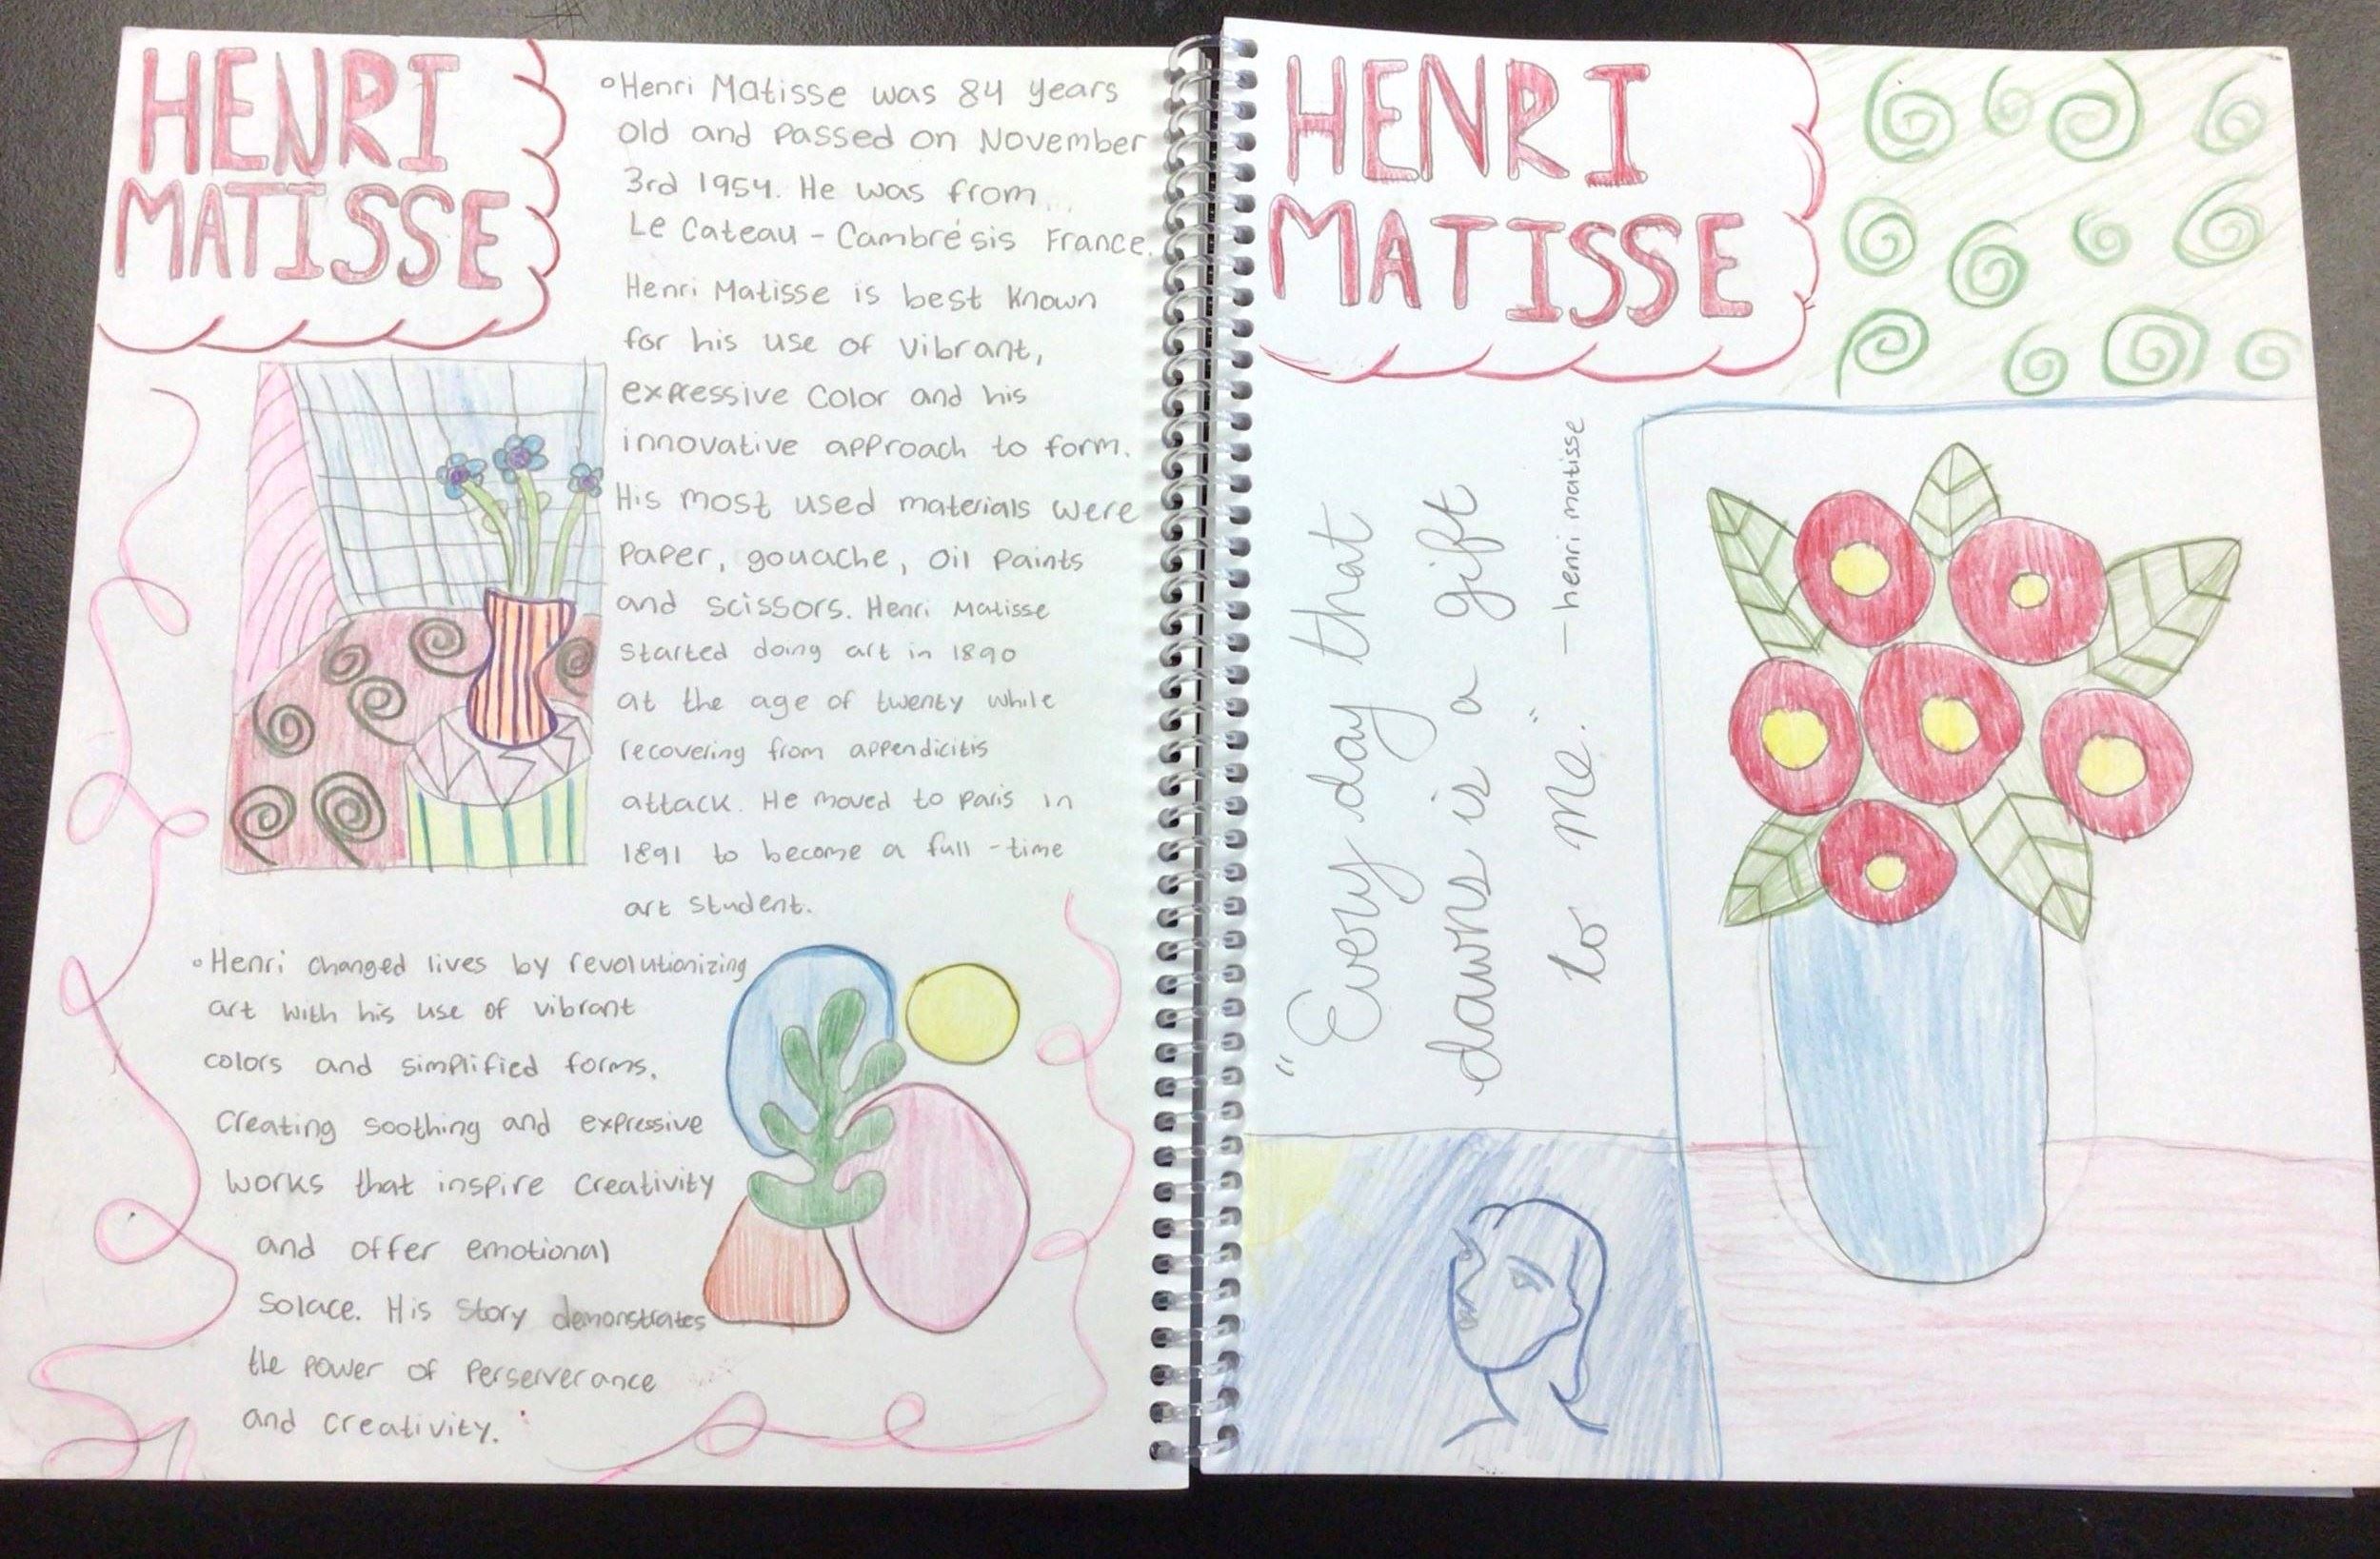 HENRI
MATISSE
Henri Matisse was 84 years
old and passed on November
3rd 1954. He was from
Le Cateau - Cambrésis France.
Henri Matisse is best known
for his use of vibrant,
expressive color and his
innovative approach to form.
His most used materials were
paper, gouache, oil paints
and scissors. Henri Matisse
started doing art in 1890
at the age of twenty while
recovering from appendicitis
attack. He moved to Paris in
1891 to become a full-time
art student.
Henri changed lives by revolutionizing
art with his use of vibrant
colors and simplified forms.
Creating soothing and expressive
works that inspire creativity
and offer emotional
solace. His story demonstrates
the power of perserverance
and creativity.
HENRI
MATISSE
"Every day that
dawns is a gift
to me." - henri matisse